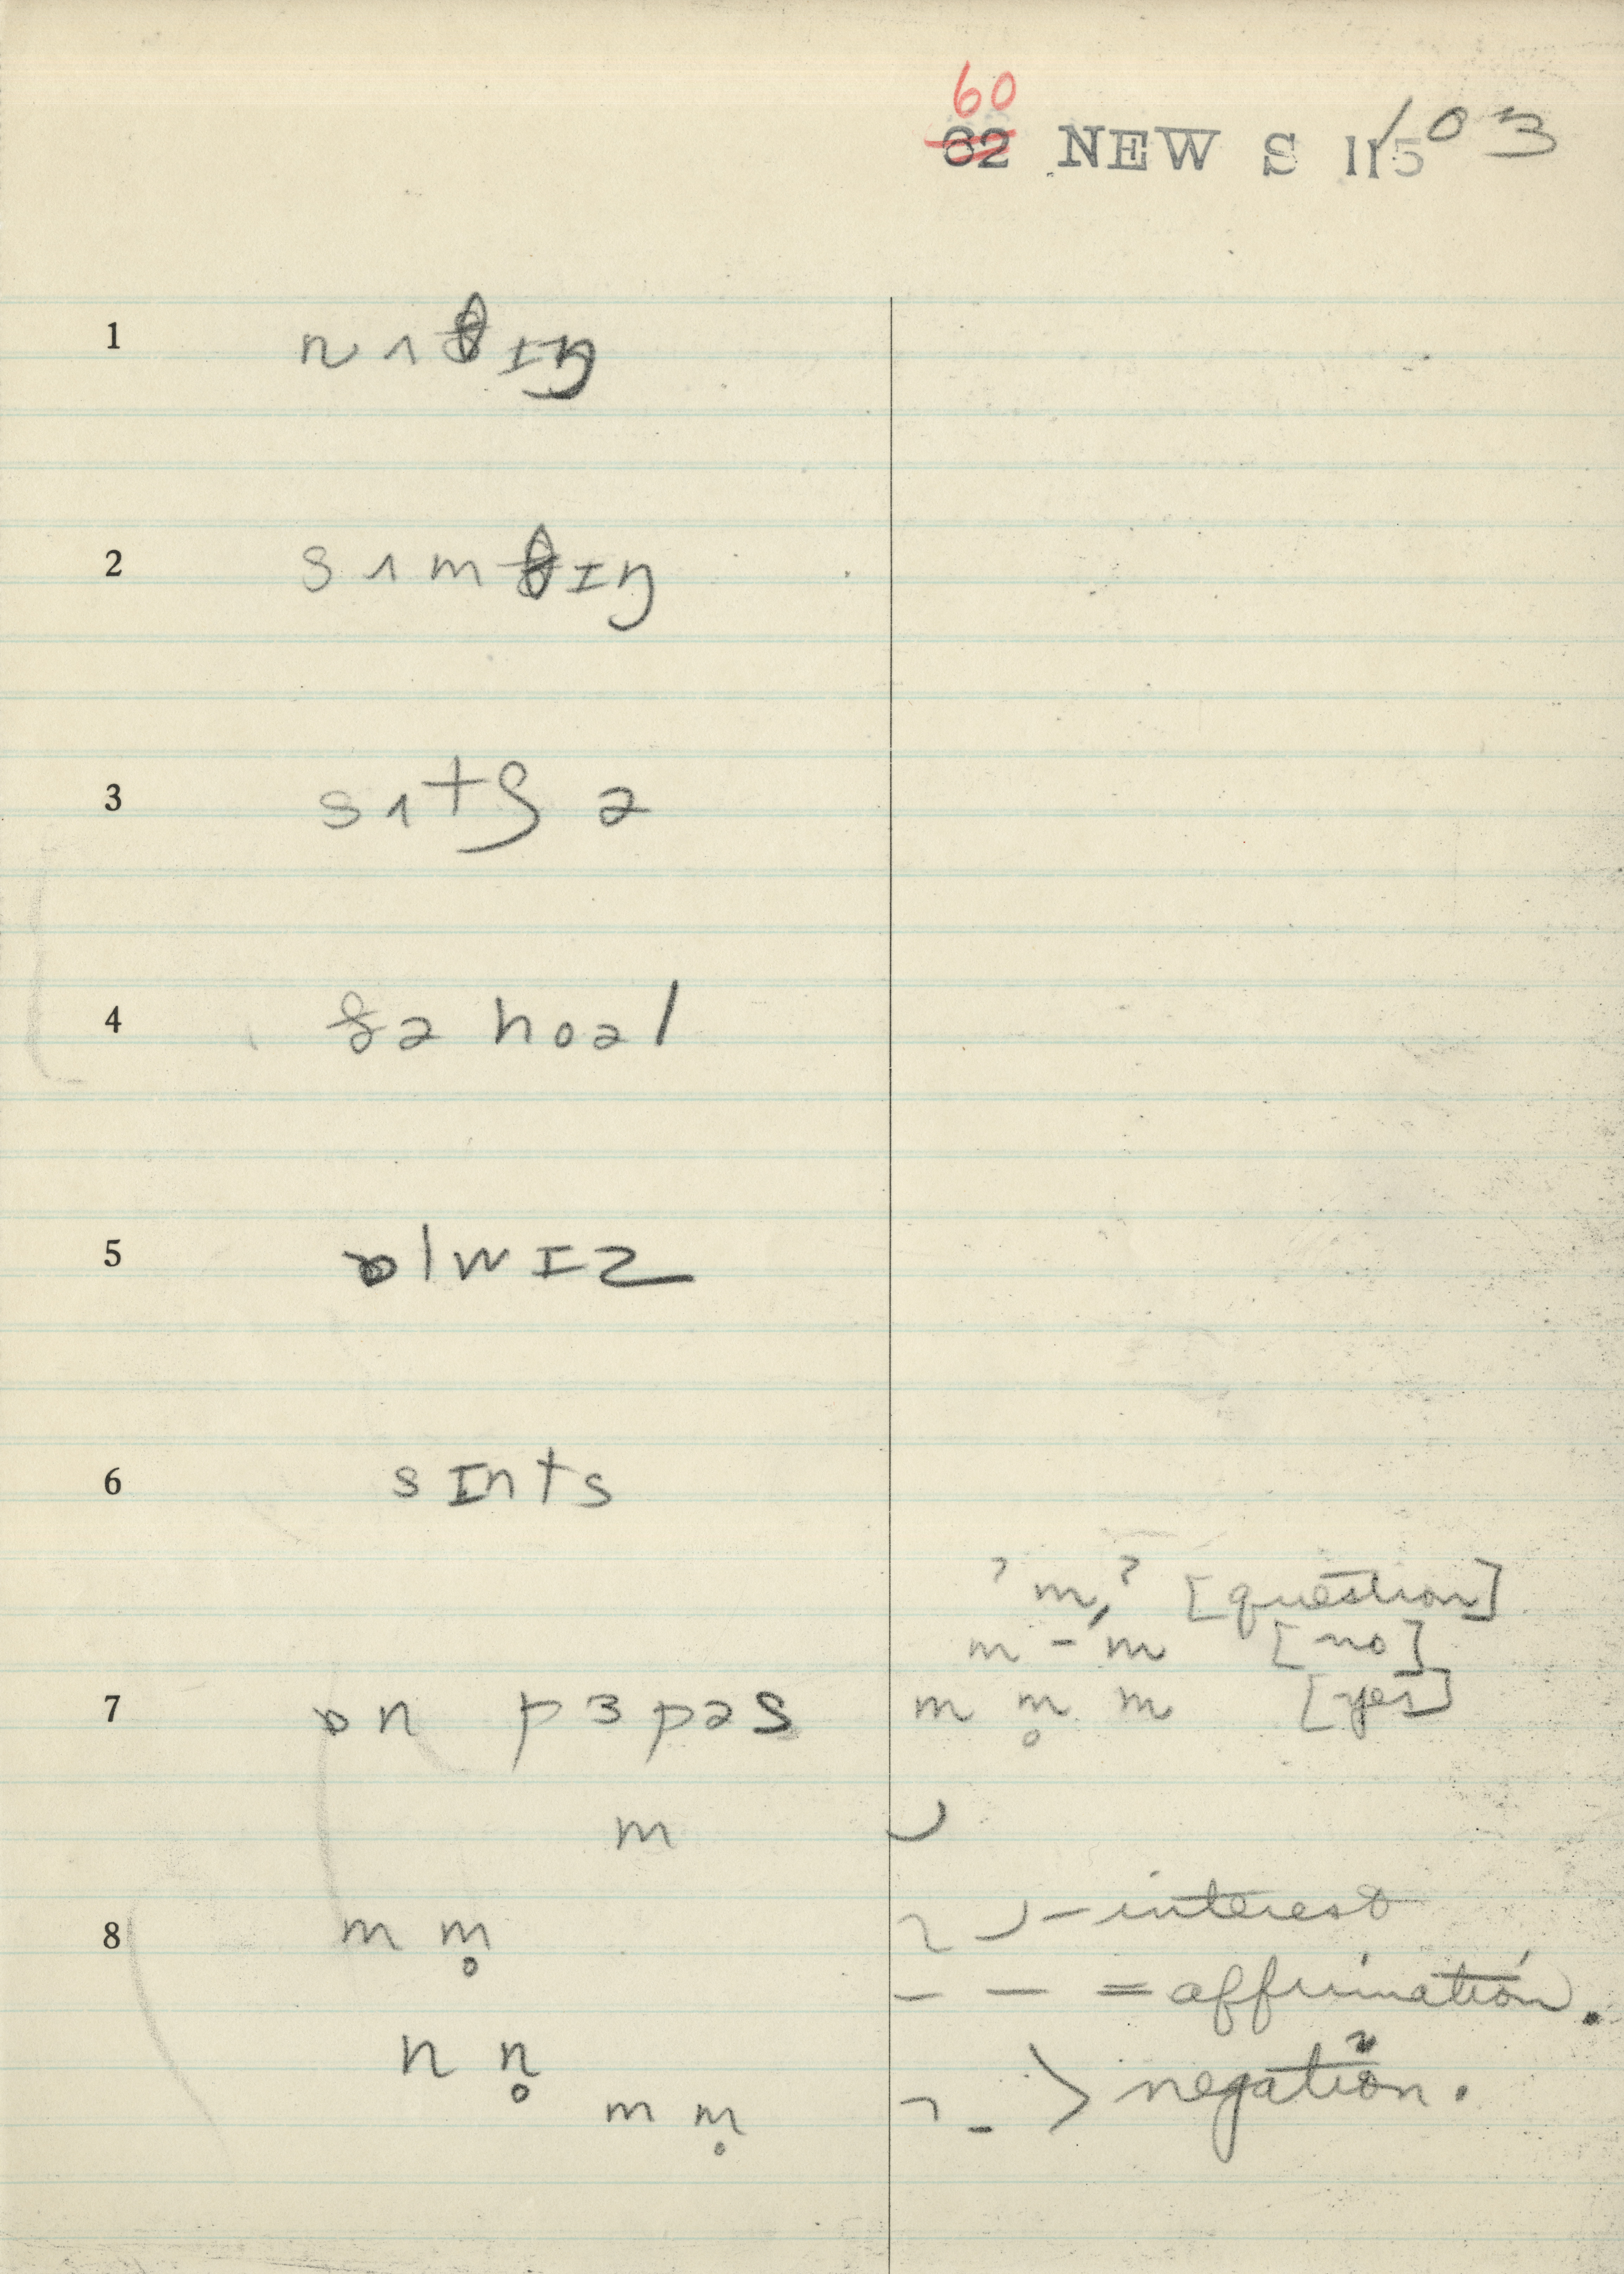 60
62 NEW S 115 103
1 nʌθɪŋ
2 sʌmθɪŋ
3 sʌtʃ ə
4 ðə hoəl
5 ɒlwɪz
6 sɪnts
? m, ? [question]
m - 'm [no]
7 ɒn pɜpəs m m̥ m [yes]
m
8 m m̥ - interest
— — = affirmation.
n n̥
m m̥ > negation.